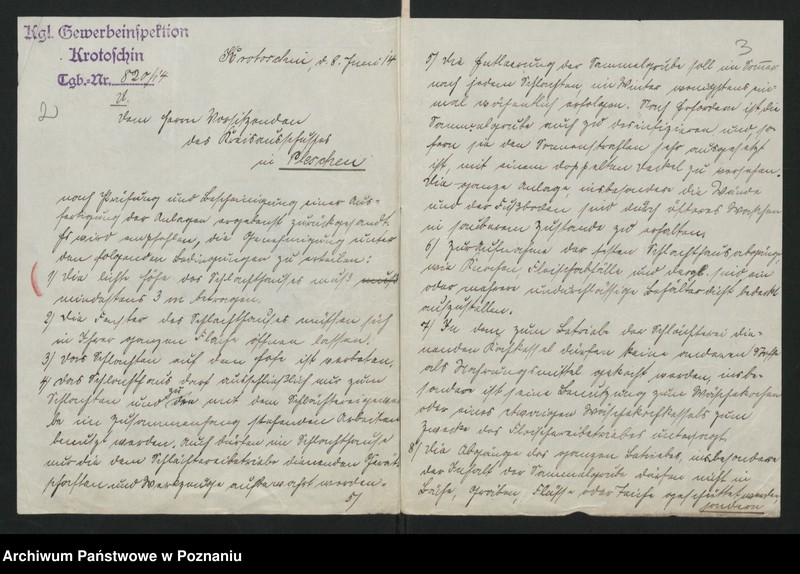 Kgl. Gewerbeinspektion
Krotoschin
Tgb.-Nr. 820/14
Krotoschin, d. 8. Juni 14
2)
dem Herrn Vorsitzenden
des Kreisausschusses
in Pleschen
nach Prüfung und Bescheinigung einer Aus-
fertigung der Anlagen ergebenst zurückgesandt.
Es wird empfohlen, die Genehmigung unter
den folgenden Bedingungen zu erteilen:
1) Die lichte Höhe des Schlachthauses muß muß
mindestens 3 m betragen.
2) Die Fenster des Schlachthauses müssen sich
in Ihrer ganzen Fläche öffnen lassen.
3) Das Schlachten auf dem Hofe ist verboten.
4) Das Schlachthaus darf ausschließlich nur zum
Schlachten und zu den mit dem Schlächtereigewer-
be im Zusammenhang stehenden Arbeiten
benutzt werden. Auch dürfen im Schlachthause
nur die dem Schlächtereibetriebe dienenden Gerät-
schaften und Werkzeuge aufbewahrt werden.
5)
3
5) Die Entleerung der Sammelgrube soll im Sommer
nach jedem Schlachten, im Winter wenigstens ein-
mal wöchentlich erfolgen. Nach Erfordern ist die
Sammelgrube auch zu desinfizieren und so-
fern sie den Sonnenstrahlen sehr ausgesetzt
ist, mit einem doppelten Deckel zu versehen.
Die ganze Anlage, insbesondere die Wände
und der Fußboden sind durch öfteres Waschen
in sauberem Zustande zu erhalten.
6) Zur Aufnahme der festen Schlachthausabgänge,
wie Knochen, Fleischabfälle und dergl. sind ein
oder mehrere undurchlässige Behälter dicht bedeckt
aufzustellen.
7) In dem zum Betriebe der Schlächterei die-
nenden Kochkessel dürfen keine anderen Stoffe
als Nahrungsmittel gekocht werden, insbe-
sondere ist seine Benutzung zum Wäschekochen
oder eines etwaigen Waschkochkessels zum
Zwecke des Fleischereibetriebes untersagt.
8) Die Abgänge des ganzen Betriebes, insbesondere
der Inhalt der Sammelgrube dürfen nicht in
Bäche, Gräben, Flüsse oder Teiche geschüttet werden
sondern
Archiwum Państwowe w Poznaniu